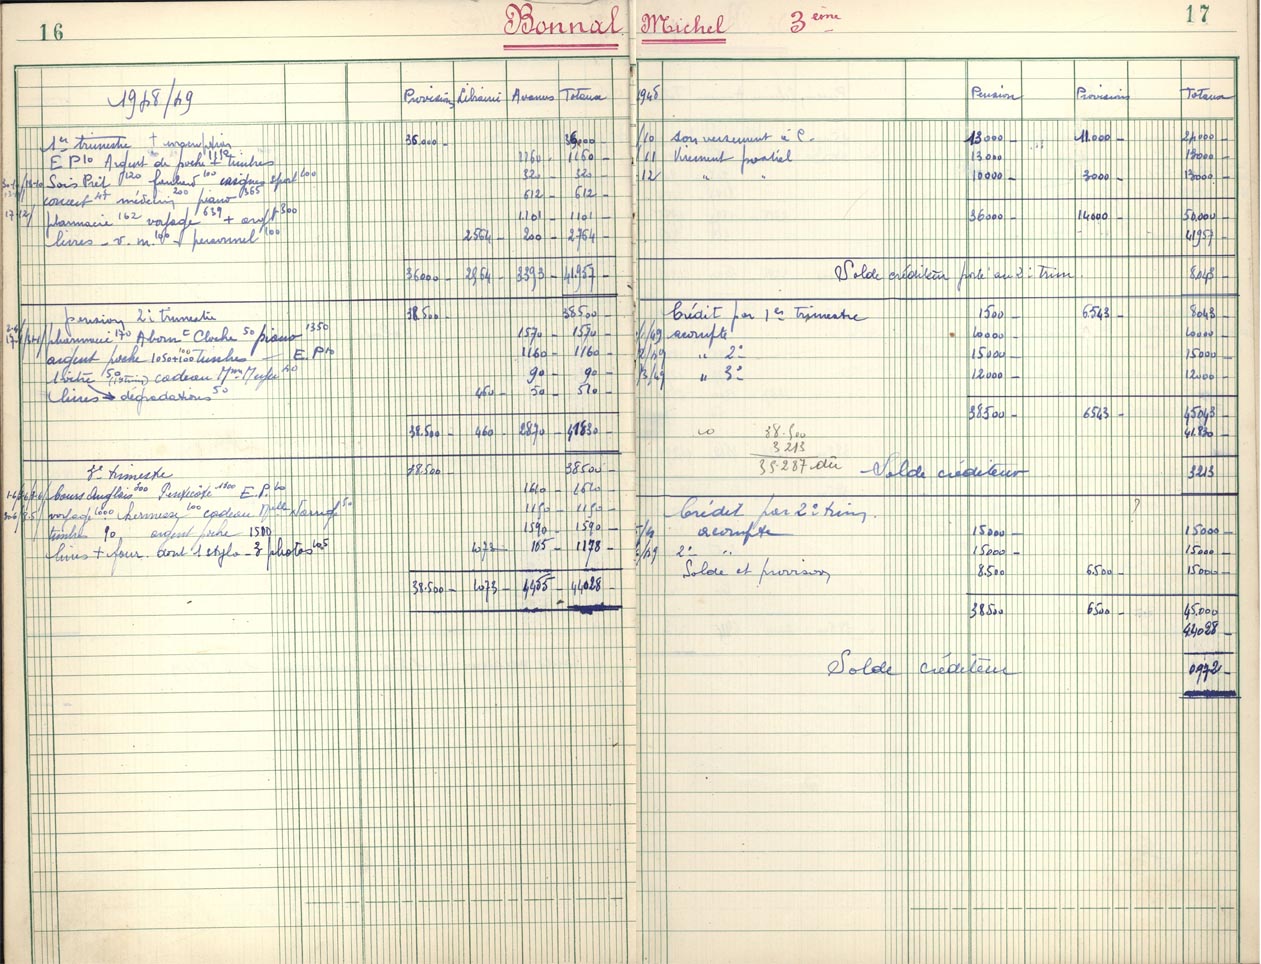 16
Bonnal Michel 3ème
17
1948/49
Provision Librairie Avances Totaux
1er trimestre + 36.000 -
E P 10 Argent de poche 1150 + timbres 1160 - 1160 -
120 100 sport 100 320 - 320 -
concert 47 médecin 200 piano 365 612 - 612 -
pharmacie 162 voyage 639 + 300 1.101 1101 -
livres - v. m. 100 personnel 100 2564 - 200 - 2764 -
36000 - 2564 - 3393 - 41957 -
pension 2e trimestre 38.500 - 38500 -
pharmacie 170 Cloche 50 piano 1350 1570 - 1570 -
argent poche 1050 + 100 timbres E. P 10 1160 - 1160 -
1 vitre 50 cadeau Mme 40 90 - 90 -
livres dégradations 50 460 - 50 - 510 -
38.500 - 460 - 2870 - 41830 -
3e trimestre 38.500 - 38500 -
Cours Anglais E. P. 10
voyage 1000 100 cadeau Melle 50 1150 - 1150 -
timbre 90 argent poche 1500 1590 - 1590 -
livres + four. dont 1 stylo - 3 photos 105 1073 - 105 - 1178 -
38.500 - 1073 - 4455 - 44028 -
1948
Pension Provisions Totaux
/10 son versement à C. 13000 11.000 - 24000 -
/11 Virement postal 13000 13000 -
/12 " " 10000 3000 - 13000 -
36000 14000 50.000
41957
Solde créditeur porté au 2e trim. 8.043
Crédit par 1er Trimestre 1500 6.543 8043
1/49 acompte 10000 10000 -
2/49 " 2e 15000 15000 -
3/49 " 3e 12000 12000 -
38500 6543 - 45043
41.830 -
38.500
3213
35.287 dû
Solde créditeur 3213
Crédit par 2e trim. ?
acompte 15000 - 15000 -
/49 2e " 15000 - 15000 -
Solde et provision 8.500 6.500 - 15000 -
38500 6500 - 45.000
44028 -
Solde créditeur 0972 -